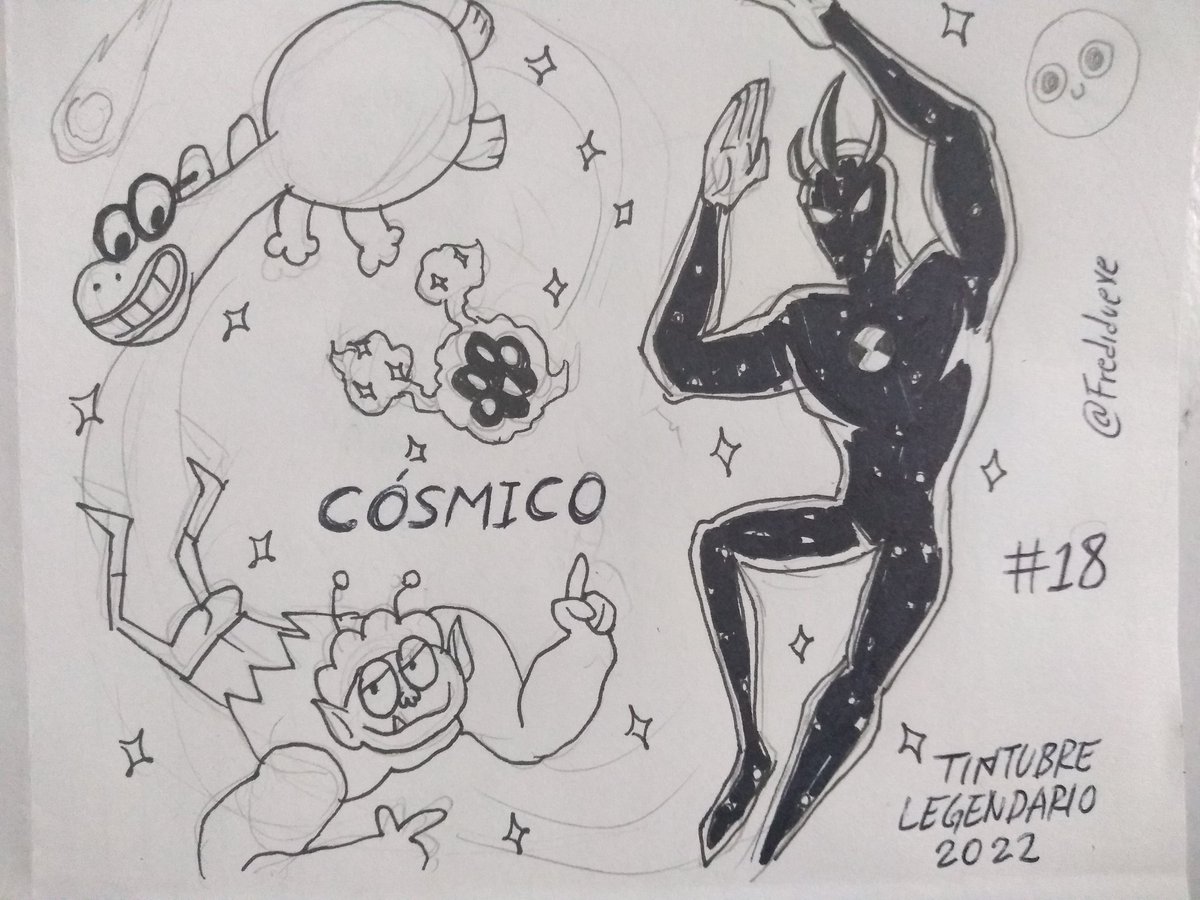 CÓSMICO
@Fredidueve
#18
TINTUBRE
LEGENDARIO
2022